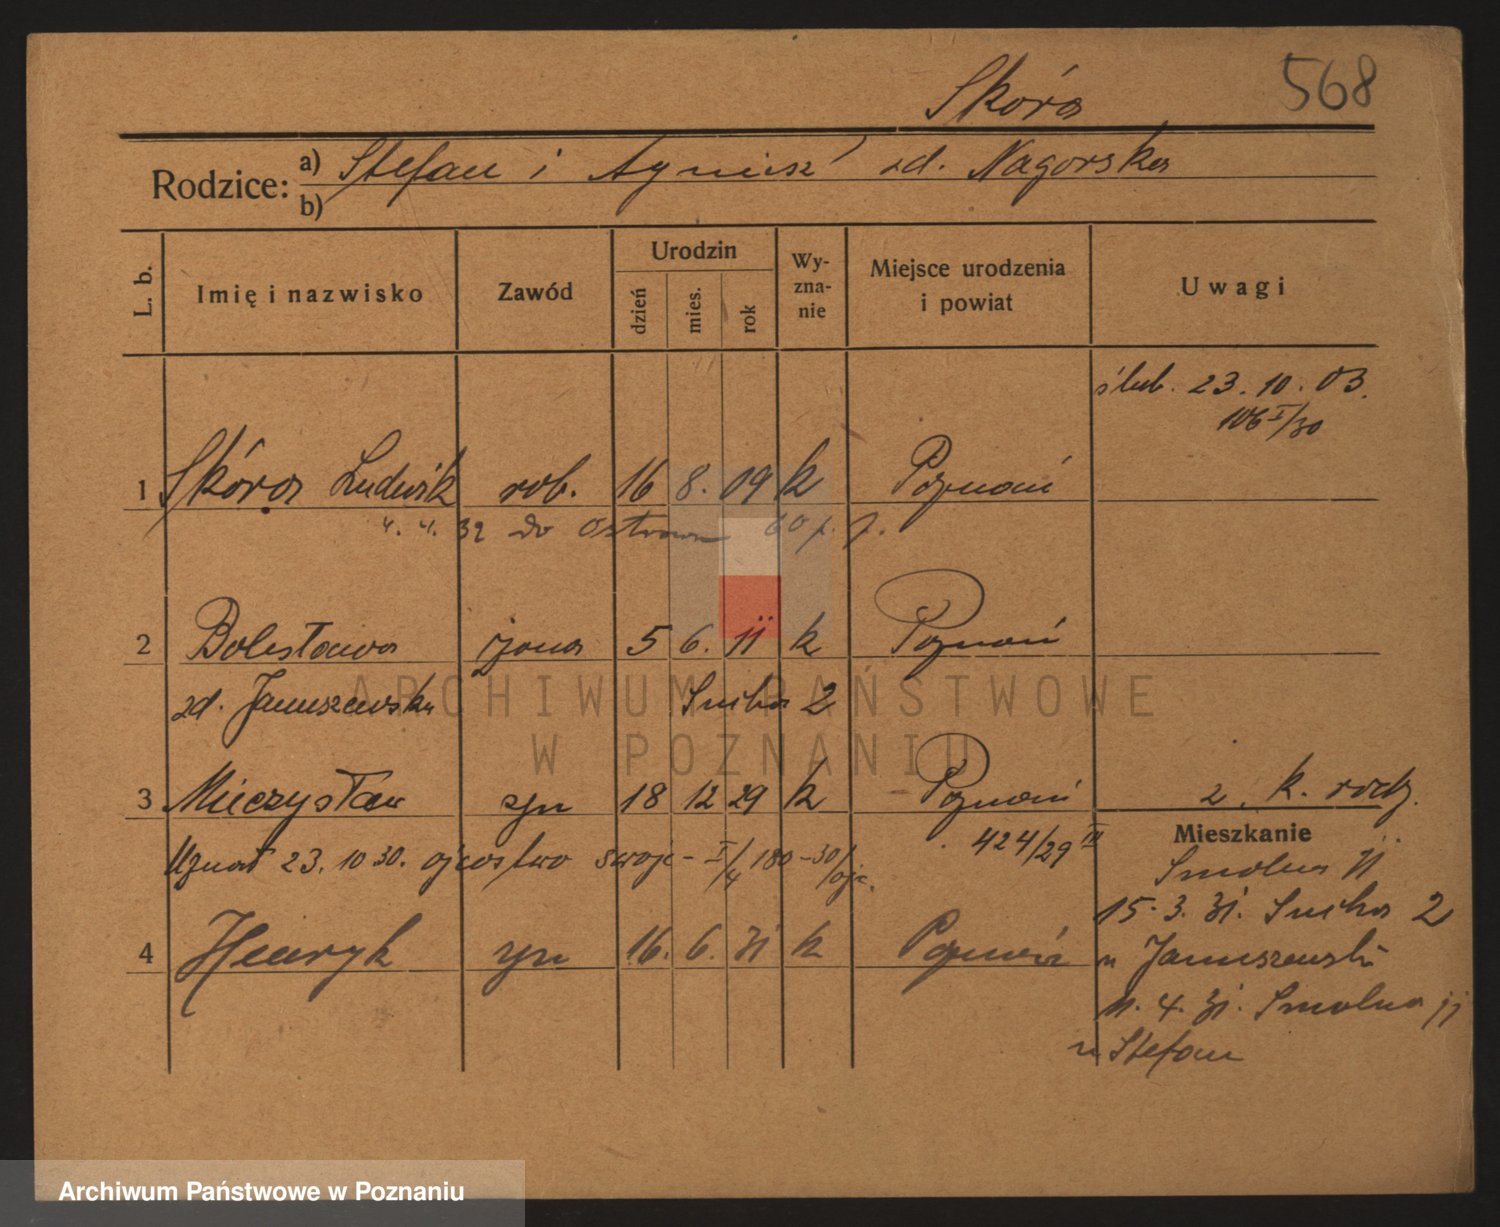 568
Skóra
Rodzice: a) Stefan i Agniesz zd. Nagorska
b)
L. b.
Imię i nazwisko
Zawód
Urodzin
dzień
mies.
rok
Wy-
zna-
nie
Miejsce urodzenia
i powiat
Uwagi
ślub. 23. 10. 03.
106 I/30
1 Skóra Ludwik rob. 16 8. 09 k Poznań
4. 4. 32 do Ostrowa 60 p. p.
2 Bolesława żona 5 6. 11 k Poznań
zd. Januszewska Sucha 2
3 Mieczysław syn 18 12 29 k Poznań z. k. rodz.
424/29 III
Mieszkanie
Uznał 23. 10 30. ojcostwo swoje - I/4 180-30/ojc.
Smolna 11
15. 3. 31. Sucha 2
4 Henryk syn 16. 6. 31 k Poznań
u Januszewski
11. 4. 31. Smolna 11
u Stefan
ARCHIWUM PAŃSTWOWE
W POZNANIU
Archiwum Państwowe w Poznaniu